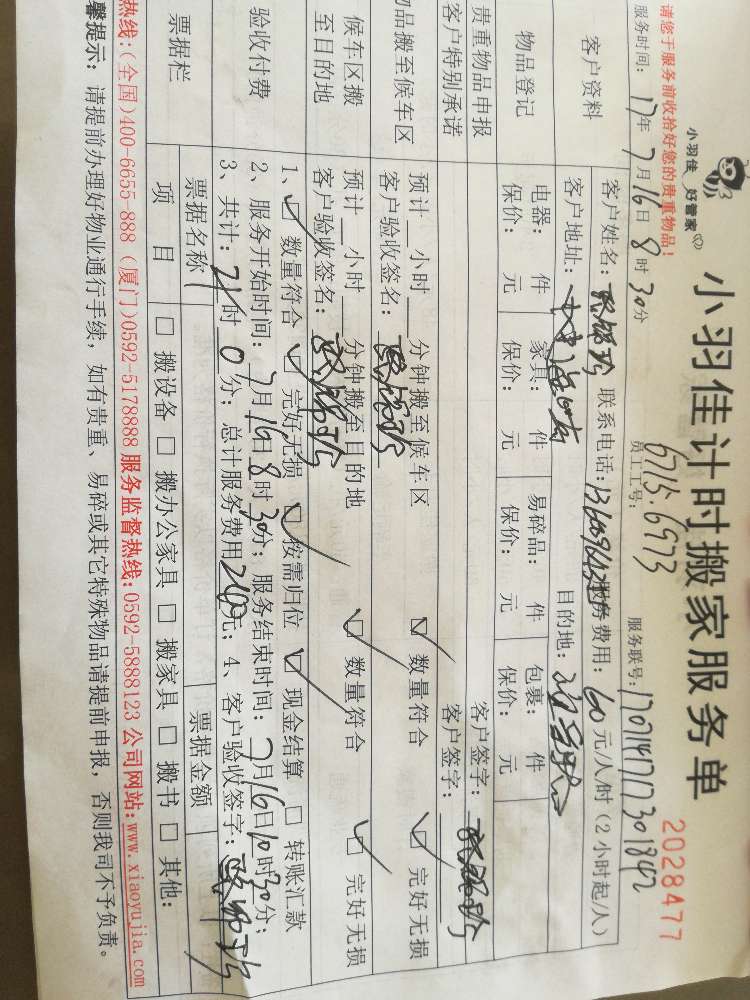 小羽佳 好管家
小羽佳计时搬家服务单
2028477
请您于服务前收拾好您的贵重物品!
员工工号: 6715.6973
服务联号:
服务时间: 17年7月16日8时30分
客户资料
客户姓名: 联系电话: 服务费用: 60元/人/时(2小时起/人)
客户地址: 目的地:
物品登记
电器: 件 家具: 件 易碎品: 件 包裹: 件
保价: 元 保价: 元 保价: 元 保价: 元
贵重物品申报 客户签字:
客户特别承诺 客户签字:
物品搬至候车区
预计__小时__分钟搬至候车区 ☑ 数量符合 ☑ 完好无损
客户验收签名:
候车区搬至目的地
预计__小时__分钟搬至目的地 ☑ 数量符合 ☑ 完好无损
客户验收签名:
验收付费
1、☑ 数量符合 ☑ 完好无损 ☑ 按需归位 ☑ 现金结算 □ 转账汇款
2、服务开始时间: 7月16日8时30分; 服务结束时间: 7月16日10时30分;
3、共计: 2小时0分; 总计服务费用240元; 4、客户验收签字:
票据栏
票据名称 票据金额
项 目 □ 搬设备 □ 搬办公家具 □ 搬家具 □ 搬书 □ 其他:
热线:(全国)400-6655-888 (厦门)0592-5178888 服务监督热线:0592-5888123 公司网站:www.xiaoyujia.com
馨提示: 请提前办理好物业通行手续, 如有贵重、易碎或其它特殊物品请提前申报, 否则我司不予负责。